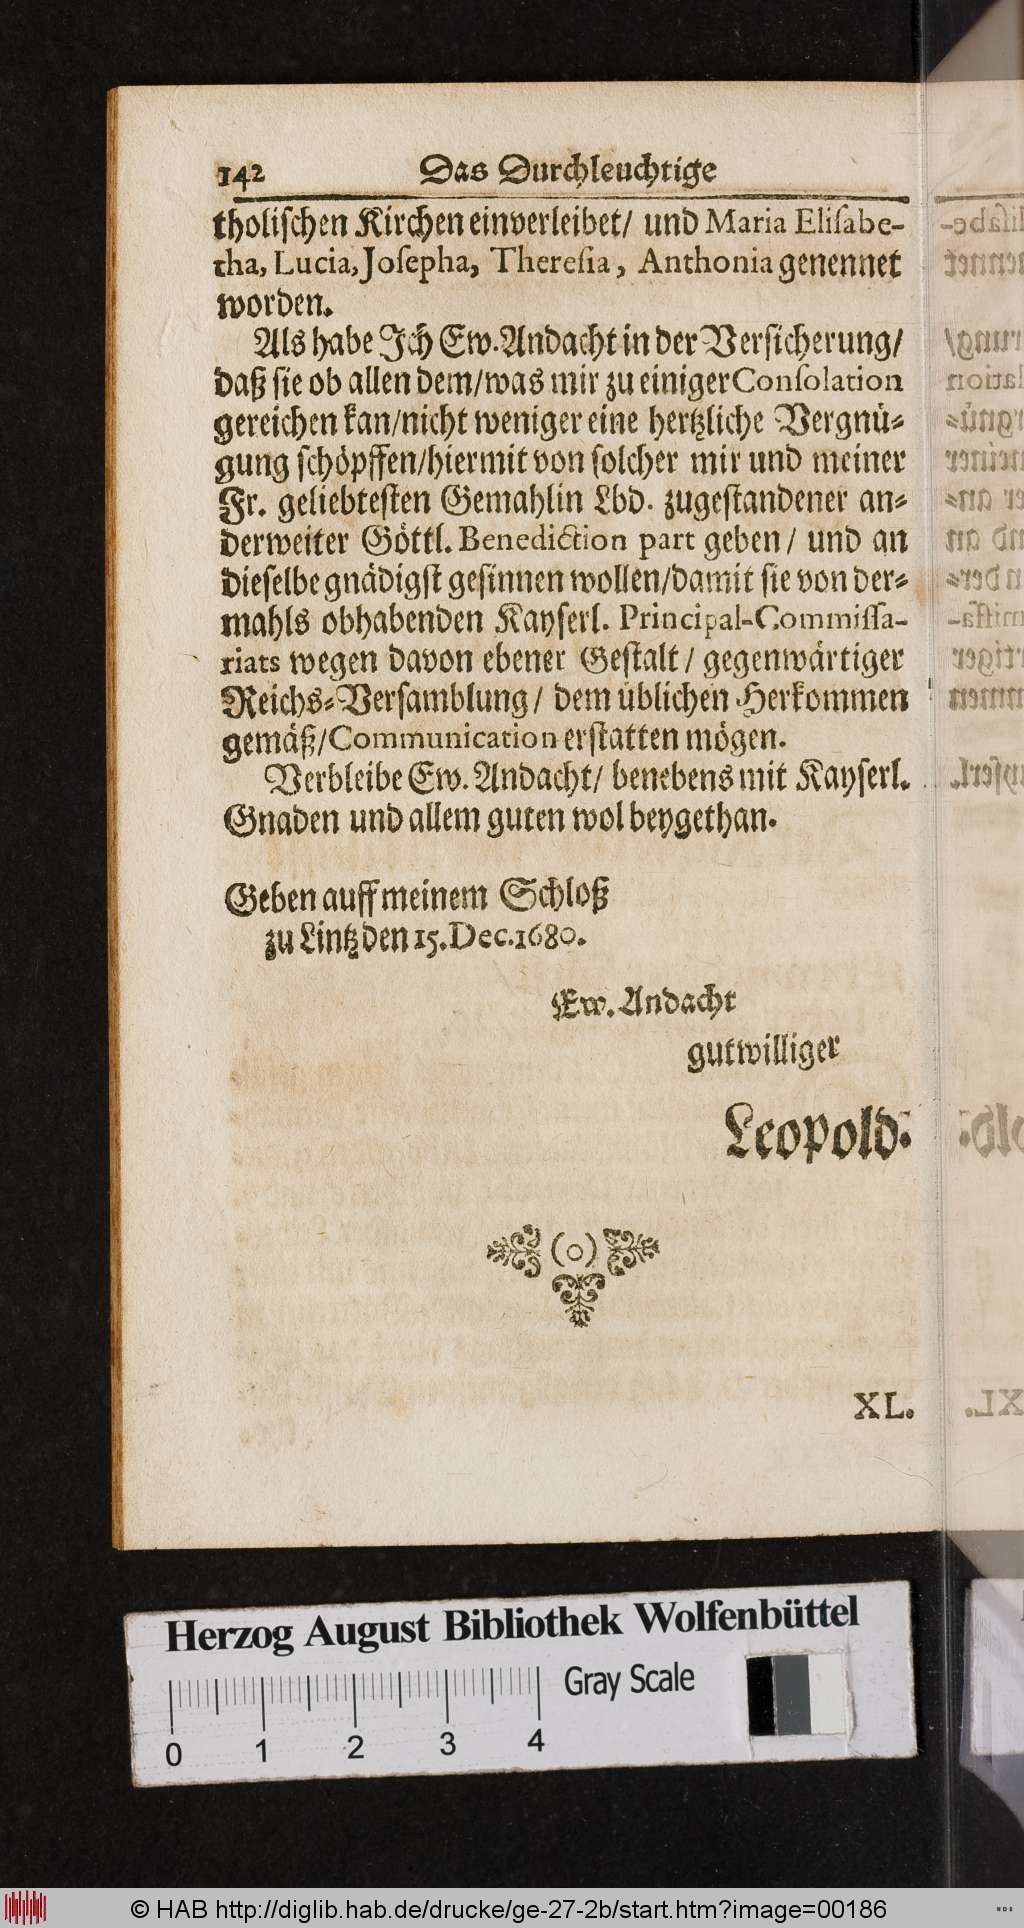 142 Das Durchleuchtige
tholiſchen Kirchen einverleibet/ und Maria Eliſabe-
tha, Lucia, Joſepha, Thereſia, Anthonia genennet
worden.
Als habe Ich Ew. Andacht in der Verſicherung/
daß ſie ob allen dem/was mir zu einiger Conſolation
gereichen kan/nicht weniger eine hertzliche Vergnü-
gung ſchöpffen/hiermit von ſolcher mir und meiner
Fr. geliebteſten Gemahlin Lbd. zugeſtandener an-
derweiter Göttl. Benediction part geben/ und an
dieſelbe gnädigſt geſinnen wollen/damit ſie von der-
mahls obhabenden Kayſerl. Principal-Commiſſa-
riats wegen davon ebener Geſtalt/ gegenwärtiger
Reichs-Verſamblung/ dem üblichen Herkommen
gemäß/Communication erſtatten mögen.
Verbleibe Ew. Andacht/ benebens mit Kayſerl.
Gnaden und allem guten wol beygethan.
Geben auff meinem Schloß
zu Lintz den 15. Dec. 1680.
Ew. Andacht
gutwilliger
Leopold.
(o)
XL.
Herzog August Bibliothek Wolfenbüttel
Gray Scale
0 1 2 3 4
© HAB http://diglib.hab.de/drucke/ge-27-2b/start.htm?image=00186